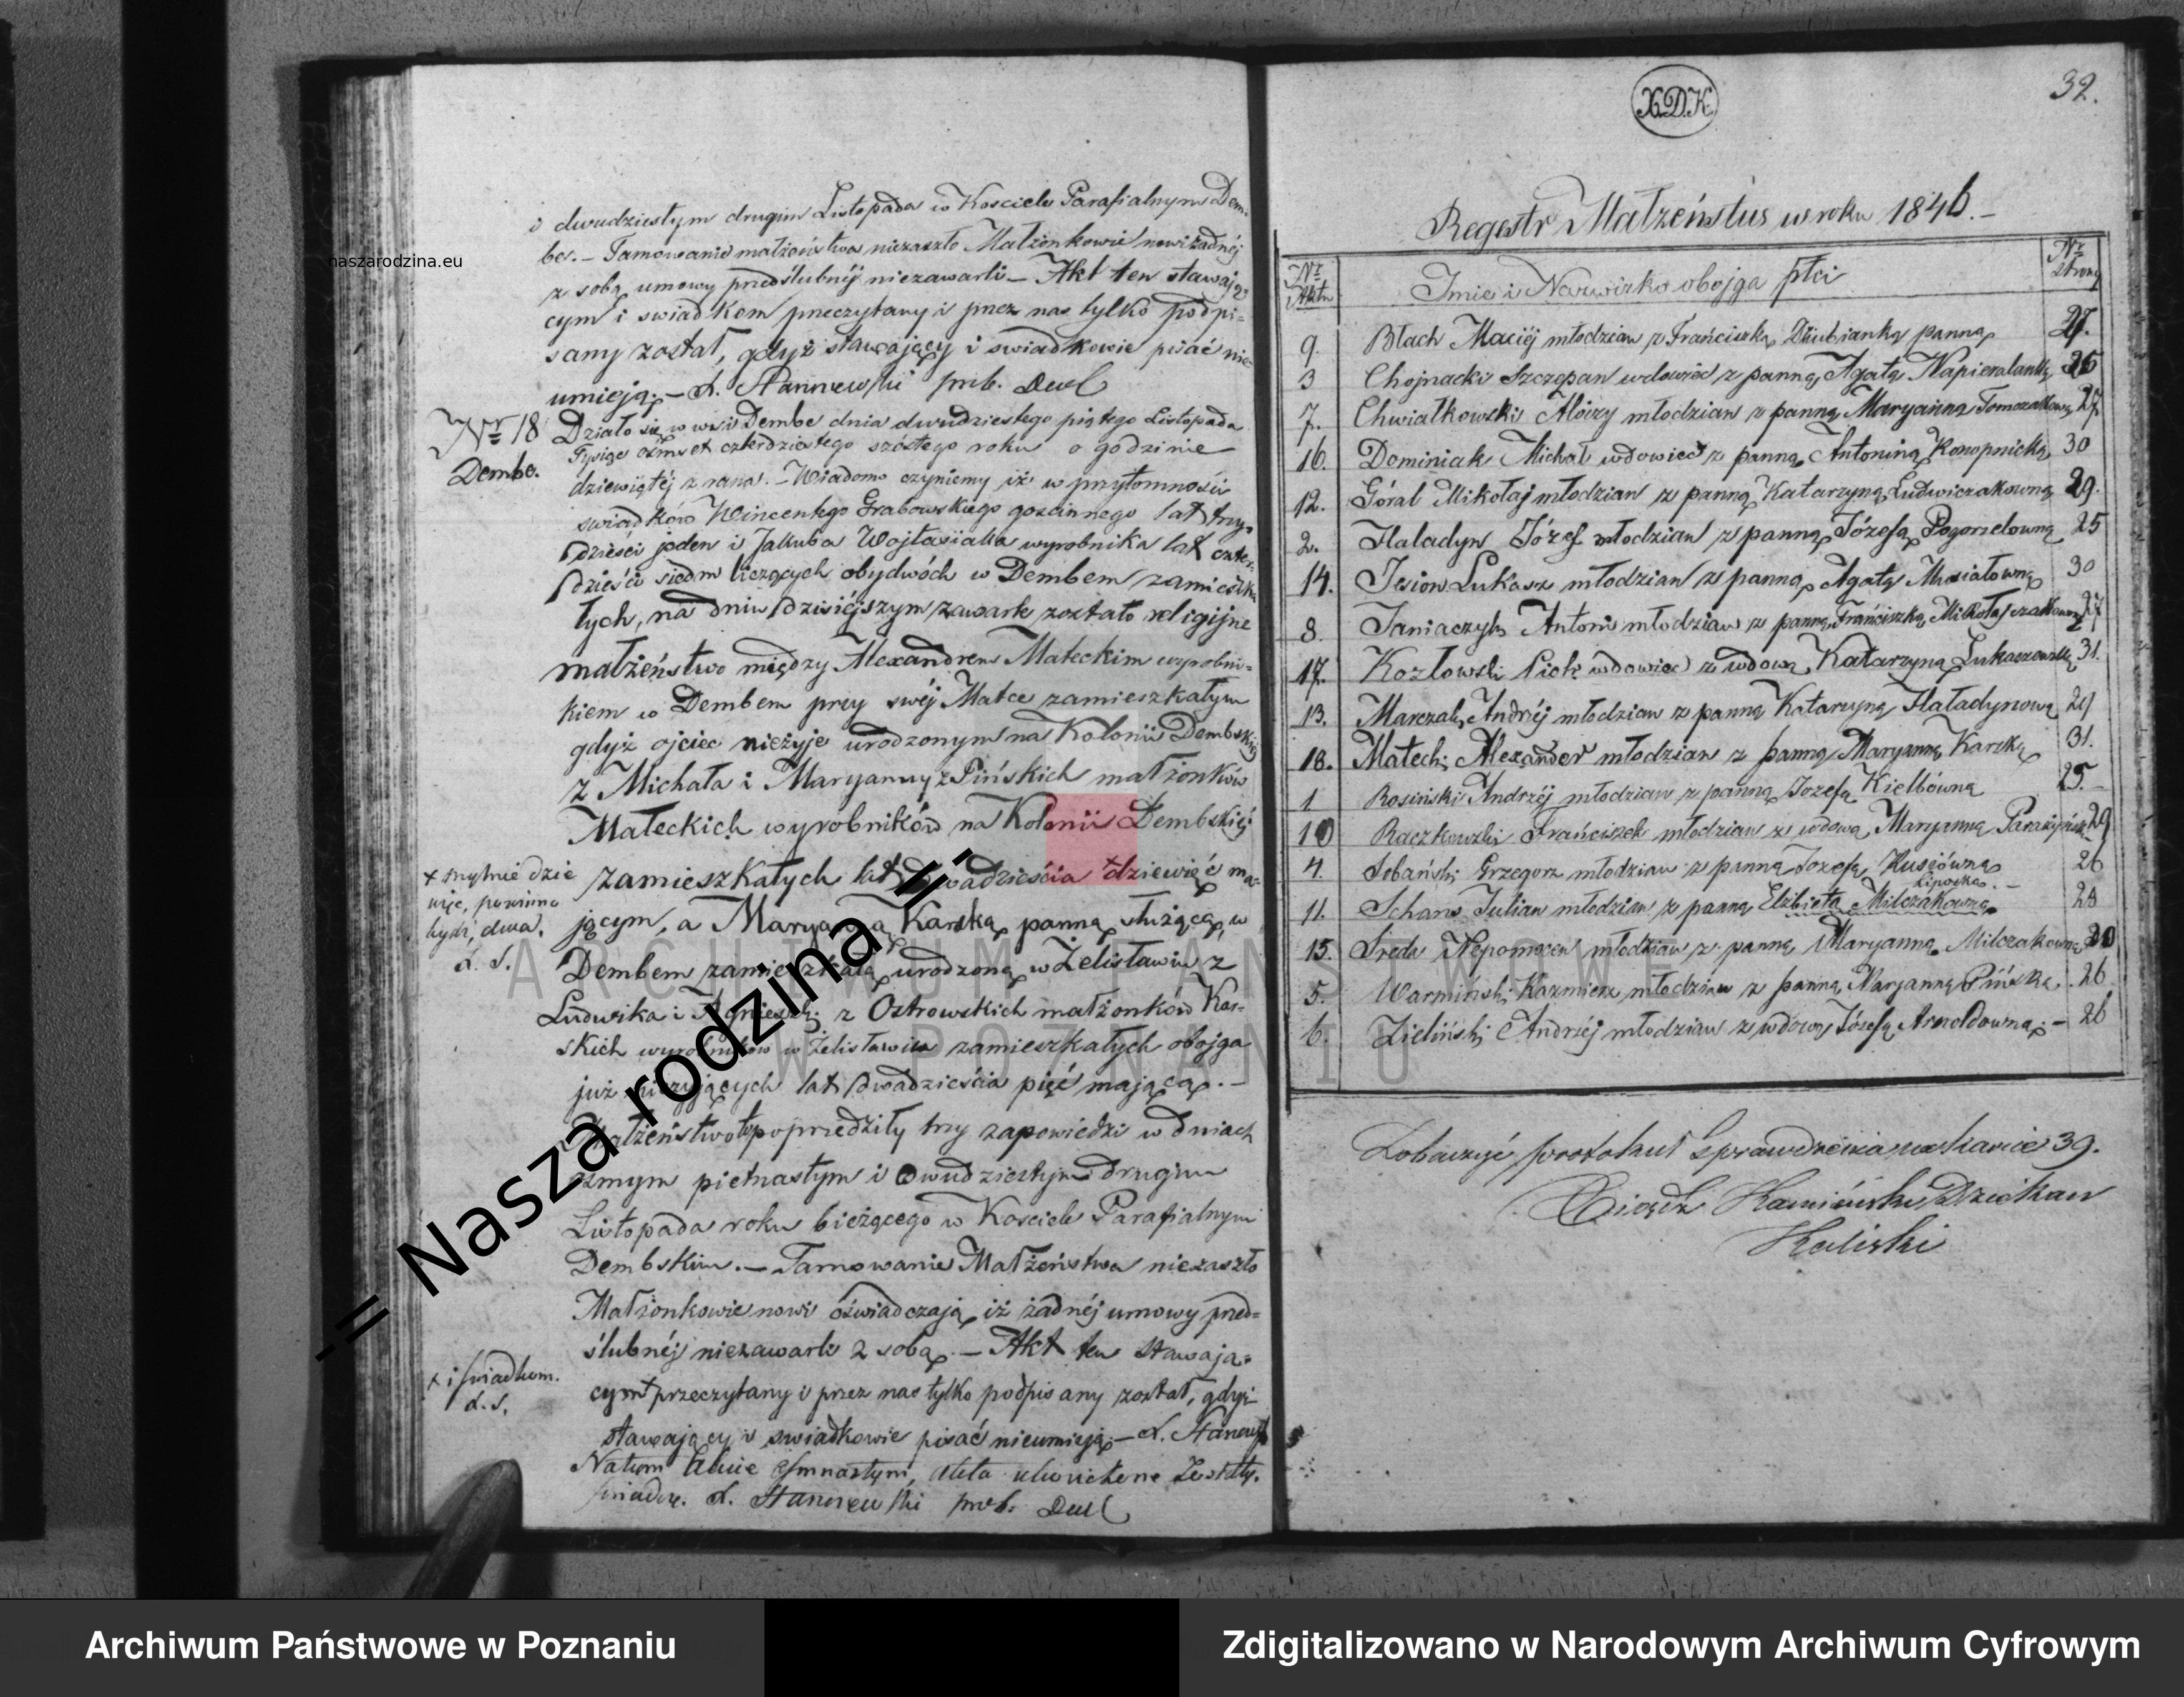 i dwudziestym drugim Listopada w Kosciele Parafialnym Dem-
be. — Tamowanie małżeństwa niezaszło Małżonkowie nowi żadnéj
z sobą umowy przedślubnéj niezawarli — Akt ten stawają-
cym i swiadkom przeczytany i przez nas tylko podpi-
sany został, gdyż stawający i swiadkowie pisać nie
umieją. —
Nr 18
Dembe.
Działo się w wsi Dembe dnia dwudziestego piątego Listopada
Tysiąc ośmset czterdziestego szóstego roku o godzinie
dziewiątéj z rana. — Wiadomo czyniemy iż w przytomności
swiadków Wincentego Grabowskiego gościnnego lat trzy-
dzieści jeden i Jakuba Wojtasiaka wyrobnika lat czter-
dzieści siedm liczących obydwóch w Dembem zamieszka-
łych, na dniu dzisiéjszym zawarte zostało religijne
małżeństwo między Alexandrem Małeckim wyrobni-
kiem w Dembem przy swéj Matce zamieszkałym
gdyż ojciec nieżyje urodzonym na Kolonii Dembskiéj
z Michała i Maryanny z Pińskich małżonków
Małeckich wyrobników na Kolonii Dembskiéj
zamieszkałych lat dwadzieścia +dziewięć ma-
+ mylnie dzie
więć, powinno
bydź, dwa.
L. S.
jącym, a Maryanną Karską panną służącą, w
Dembem zamieszkałą, urodzoną w Żelisławiu z
Ludwika i Agnieszki z Ostrowskich małżonków Kar-
skich wyrobników w Żelisławiu zamieszkałych obojga
już nieżyjących lat dwadzieścia pięć mającą. —
Małżeństwo to poprzedziły trzy zapowiedzi w dniach
ósmym pietnastym i dwudziestym drugim
Listopada roku bieżącego w Kosciele Parafialnym
Dembskim. — Tamowanie Małżeństwa niezaszło
Małżonkowie nowi oświadczają, iż żadnéj umowy przed-
ślubnéj niezawarli z sobą. — Akt ten stawają-
+ i swiadkom.
L. S.
cym + przeczytany i przez nas tylko podpisany został, gdyż
stawający i swiadkowie pisać nieumieją. —
X.D.K.
32.
Regestr Małżeństw w roku 1846. —
Nr Aktu
Imie i Nazwisko obojga płci
Nr strony
9. Błach Maciéj młodzian z Franciszką Dziubianką panną 27.
3 Chojnacki Szczepan wdowiec z panną Agatą Napieralanką 25
7. Chwiałkowski Aloizy młodzian z panną Maryanną Tomczakówną 27
16. Dominiak Michał wdowiec z panną Antoniną Konopnicką 30
12. Góral Mikołaj młodzian z panną Katarzyną Ludwiczakowną 29.
2. Haladyn Józef młodzian z panną Józefą Pogorzelowną 25
14. Jesion Łukasz młodzian z panną Agatą Musiałowną 30
8. Janiaczyk Antoni młodzian z panną Franciszką Mikołajczakówną 27
17. Kozłowski Piotr wdowiec z wdową Katarzyną Łukaszewską 31.
13. Marczak Andréj młodzian z panną Katarzyną Haładynową 29
18. Małecki Alexander młodzian z panną Maryanną Karską 31.
1 Rosiński Andrzéj młodzian z panną Jozefą Kielbówną 25. —
10 Raczkowski Frańciszek młodzian z wdową Maryanną 29
4. Sobański Grzegorz młodzian z panną Jozefą 26
11. Schans Julian młodzian z panną Elżbietą Milczakowną Liposką. — 28
15. Sreda Nepomocen młodzian z panną Maryanną Milczakowną 30
5. Warmiński Kazmierz młodzian z panną Maryanną Pińską. 26
6. Zieliński Andrzéj młodzian z wdową Józefą Arnoldowną. — 26
Zobaczyć protokuł sprawdzenia na karcie 39.
Xiądz Kamiński Dziekan
Kaliski
naszarodzina.eu
-= Nasza rodzina =-
ARCHIWUM PAŃSTWOWE
W POZNANIU
Archiwum Państwowe w Poznaniu
Zdigitalizowano w Narodowym Archiwum Cyfrowym